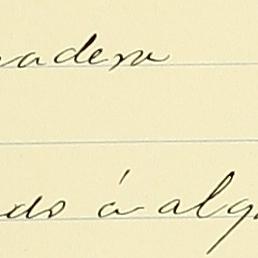 adera
do á alg